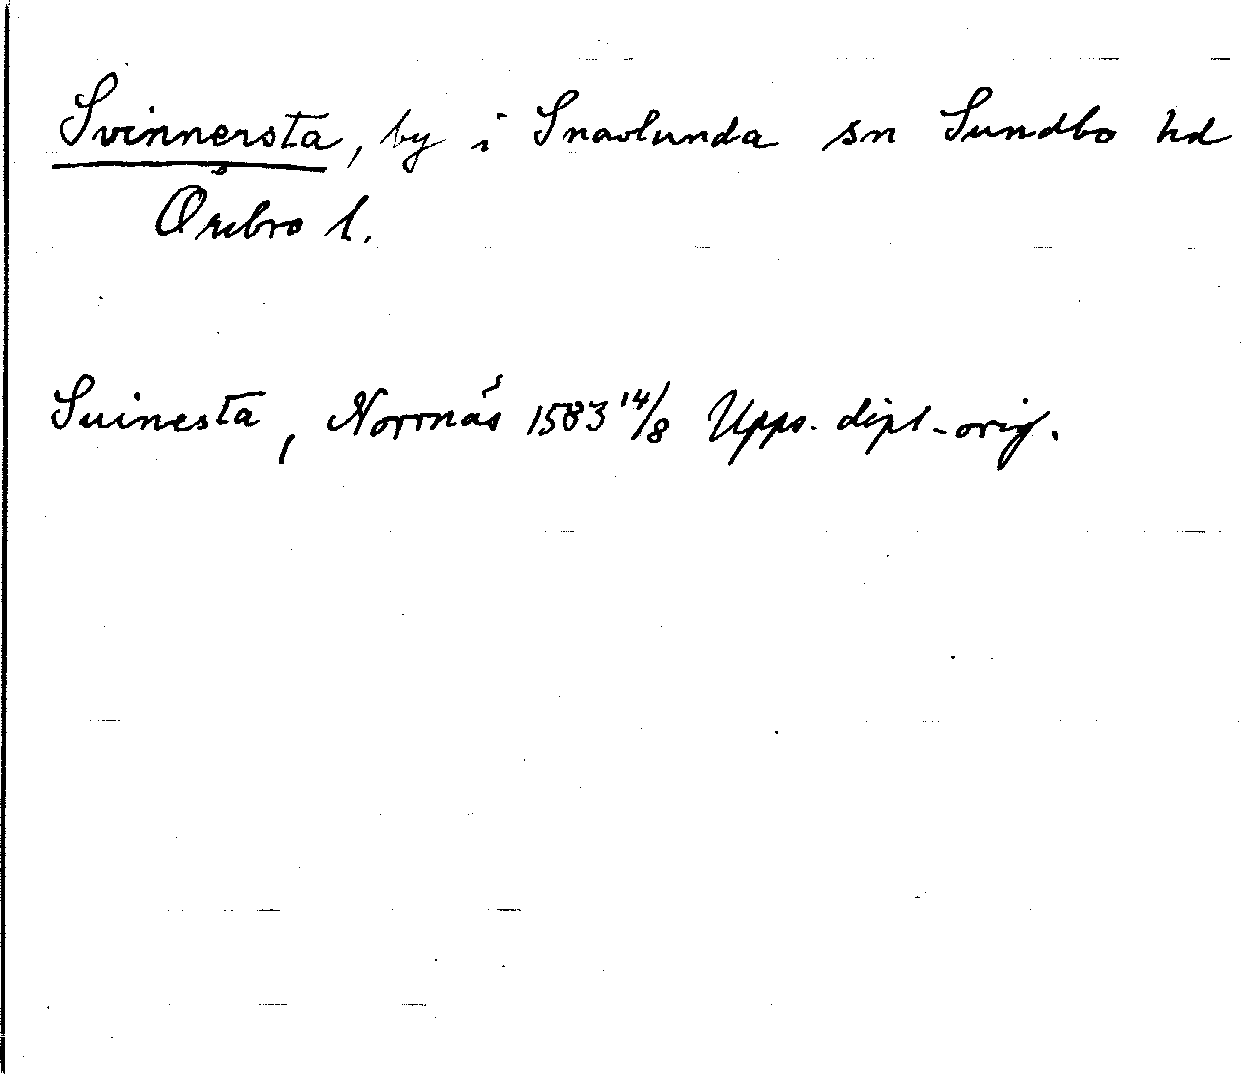 Svinnersta, by i Snavlunda sn Sundbo hd
Örebro l.
Suinesta, Norrnäs 1583 14/8 Upps. dipl.-orig.